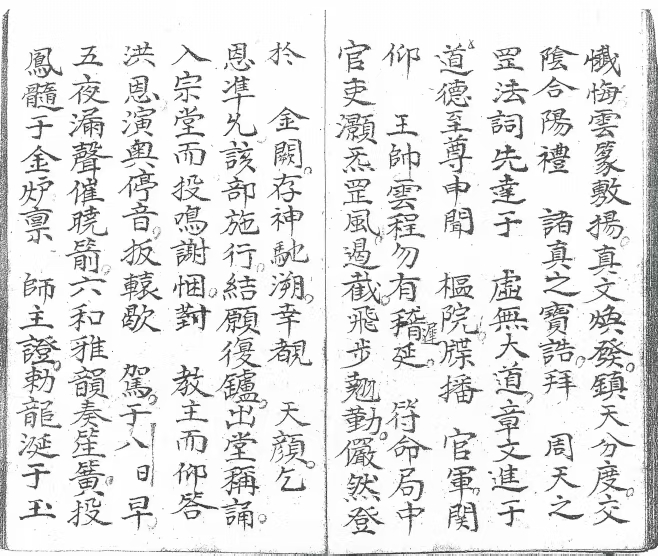 懺悔雲篆敷揚真文煥發鎮天分度交
陰合陽禮　諸真之寶誥拜　周天之
罡法詞先達于　虛無大道章文進于
道德至尊申聞　樞院牒播　官軍関
仰　王帥雲程勿有稽遲延　符命局中
官吏灝炁罡風遏截飛步勉勤儼然登
於　金闕存神馳溯幸覩　天顔乞
恩準允該部施行結願復鑪出堂稱誦
入宗堂而投鳴謝悃對　教主而仰答
洪恩演輿停音扳轅歇　駕于八日早
五夜漏聲催曉箭六和雅韻奏笙簧投
鳳髓于金炉禀　師主證勅龍涎于玉